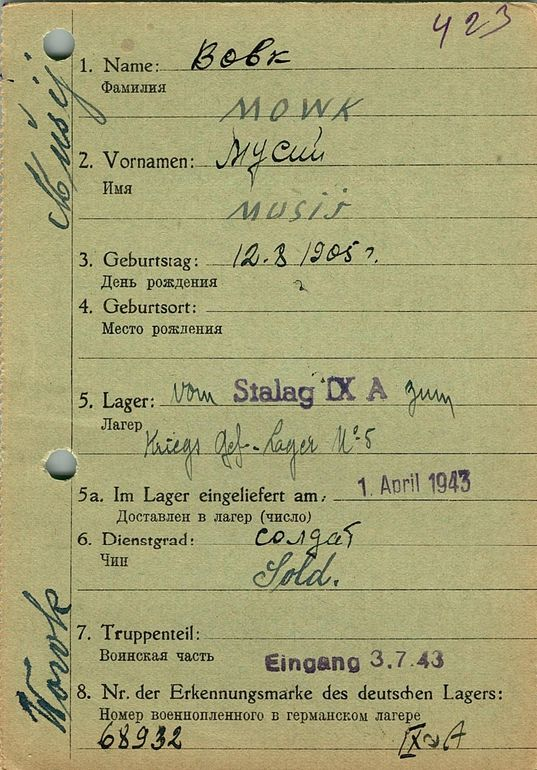 423
1. Name: Вовк
Фамилия
MOWK
2. Vornamen: Мусий
Имя
MUSIJ
3. Geburtstag: 12.8 1905 г.
День рождения
4. Geburtsort:
Место рождения
5. Lager: vom Stalag IX A zum
Лагер
Kriegs Gef.-Lager No 5
5a. Im Lager eingeliefert am: 1. April 1943
Доставлен в лагер (число)
6. Dienstgrad: солдат
Чин
Sold.
7. Truppenteil:
Воинская часть
Eingang 3.7.43
8. Nr. der Erkennungsmarke des deutschen Lagers:
Номер военнопленного в германском лагере
68932 IX A
Wowk
Musij